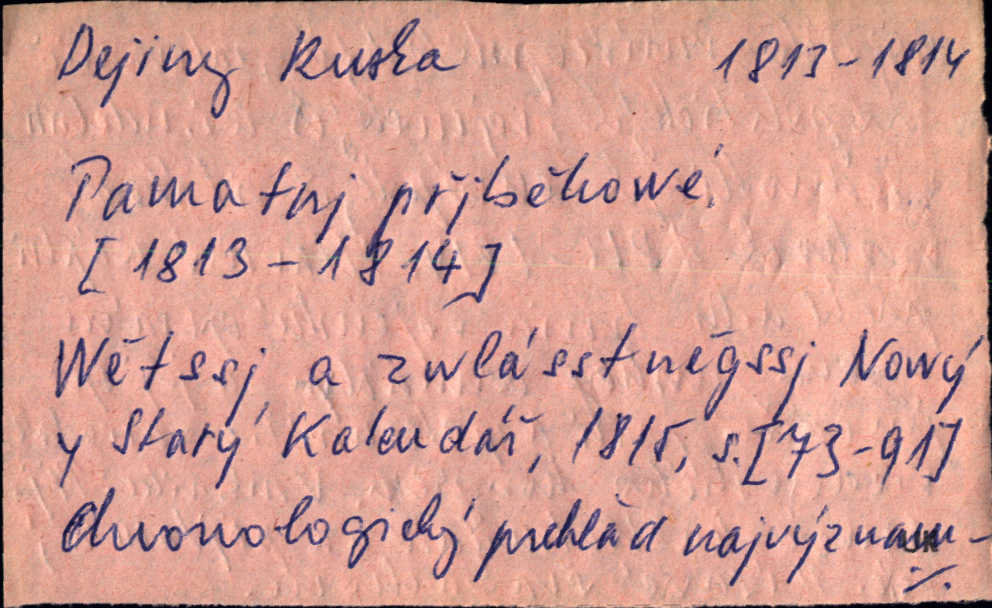 Dejiny Ruska 1813-1814
Pamatnj přjběhowé
[1813-1814]
Wětssj a zwlásstněgssj Nowý
y Starý Kalendář, 1815, s.[73-91]
Chronologický prehlad najvýznam-
./.